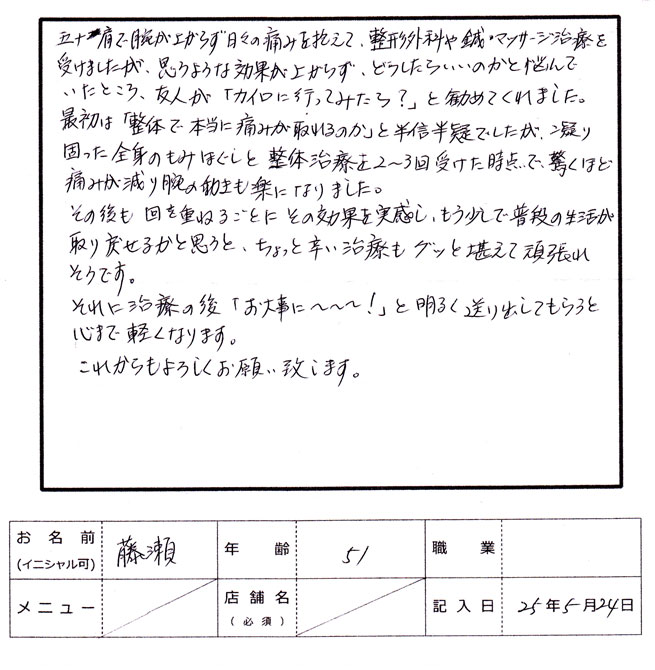 五十肩で腕が上がらず日々の痛みを抱えて、整形外科や鍼・マッサージ治療を
受けましたが、思うような効果が上がらず、どうしたらいいのかと悩んで
いたところ、友人が「カイロに行ってみたら?」と勧めてくれました。
最初は「整体で本当に痛みが取れるのか」と半信半疑でしたが、凝り
固った全身のもみほぐしと整体治療を2〜3回受けた時点で、驚くほど
痛みが減り腕の動きも楽になりました。
その後も回を重ねるごとにその効果を実感し、もう少しで普段の生活が
取り戻せるかと思うと、ちょっと辛い治療もグッと堪えて頑張れ
そうです。
それに治療の後「お大事に〜〜〜!」と明るく送り出してもらうと
心まで軽くなります。
これからもよろしくお願い致します。
お名前 (イニシャル可) 藤瀬 年齢 51 職業
メニュー 店舗名 (必須) 記入日 25年5月24日